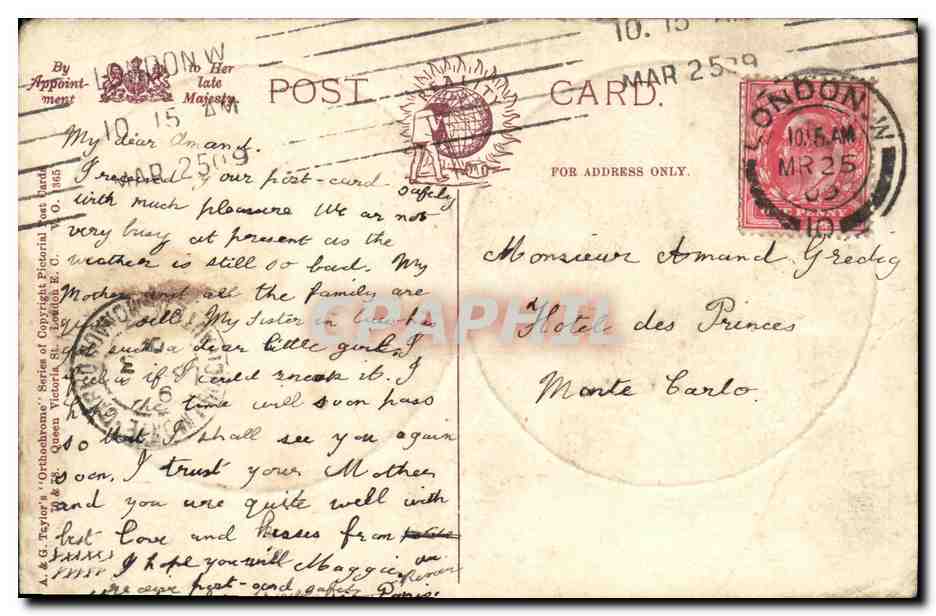 By Appoint-ment
to Her late Majesty.
POST CARD.
QUALITY
FOR ADDRESS ONLY.
LONDON. W
10. 15 AM
MAR 25 09
10. 15 AM
MAR 25 09
LONDON. W
10.15.AM
MR 25
09
10
ONE PENNY
A. & G. Taylor's "Orthochrome" Series of Copyright Pictorial Post Cards
Queen Victoria, St. London E. C. 1365
My dear Amand.
I received your post-card safely
with much pleasure We are not
very busy at present as the
weather is still so bad. My
Mother and all the family are
quite well. My Sister in law has
such a dear little girl. I
feel as if I could sneak it. I
the time will soon pass
so that shall see you again
soon. I trust your Mother
and you are quite well with
best love and kisses from
I hope you will Maggie
receive post-card safely Paris.
Monsieur Amand Gredig
Hotel des Princes
Monte Carlo.
CPAPHIL